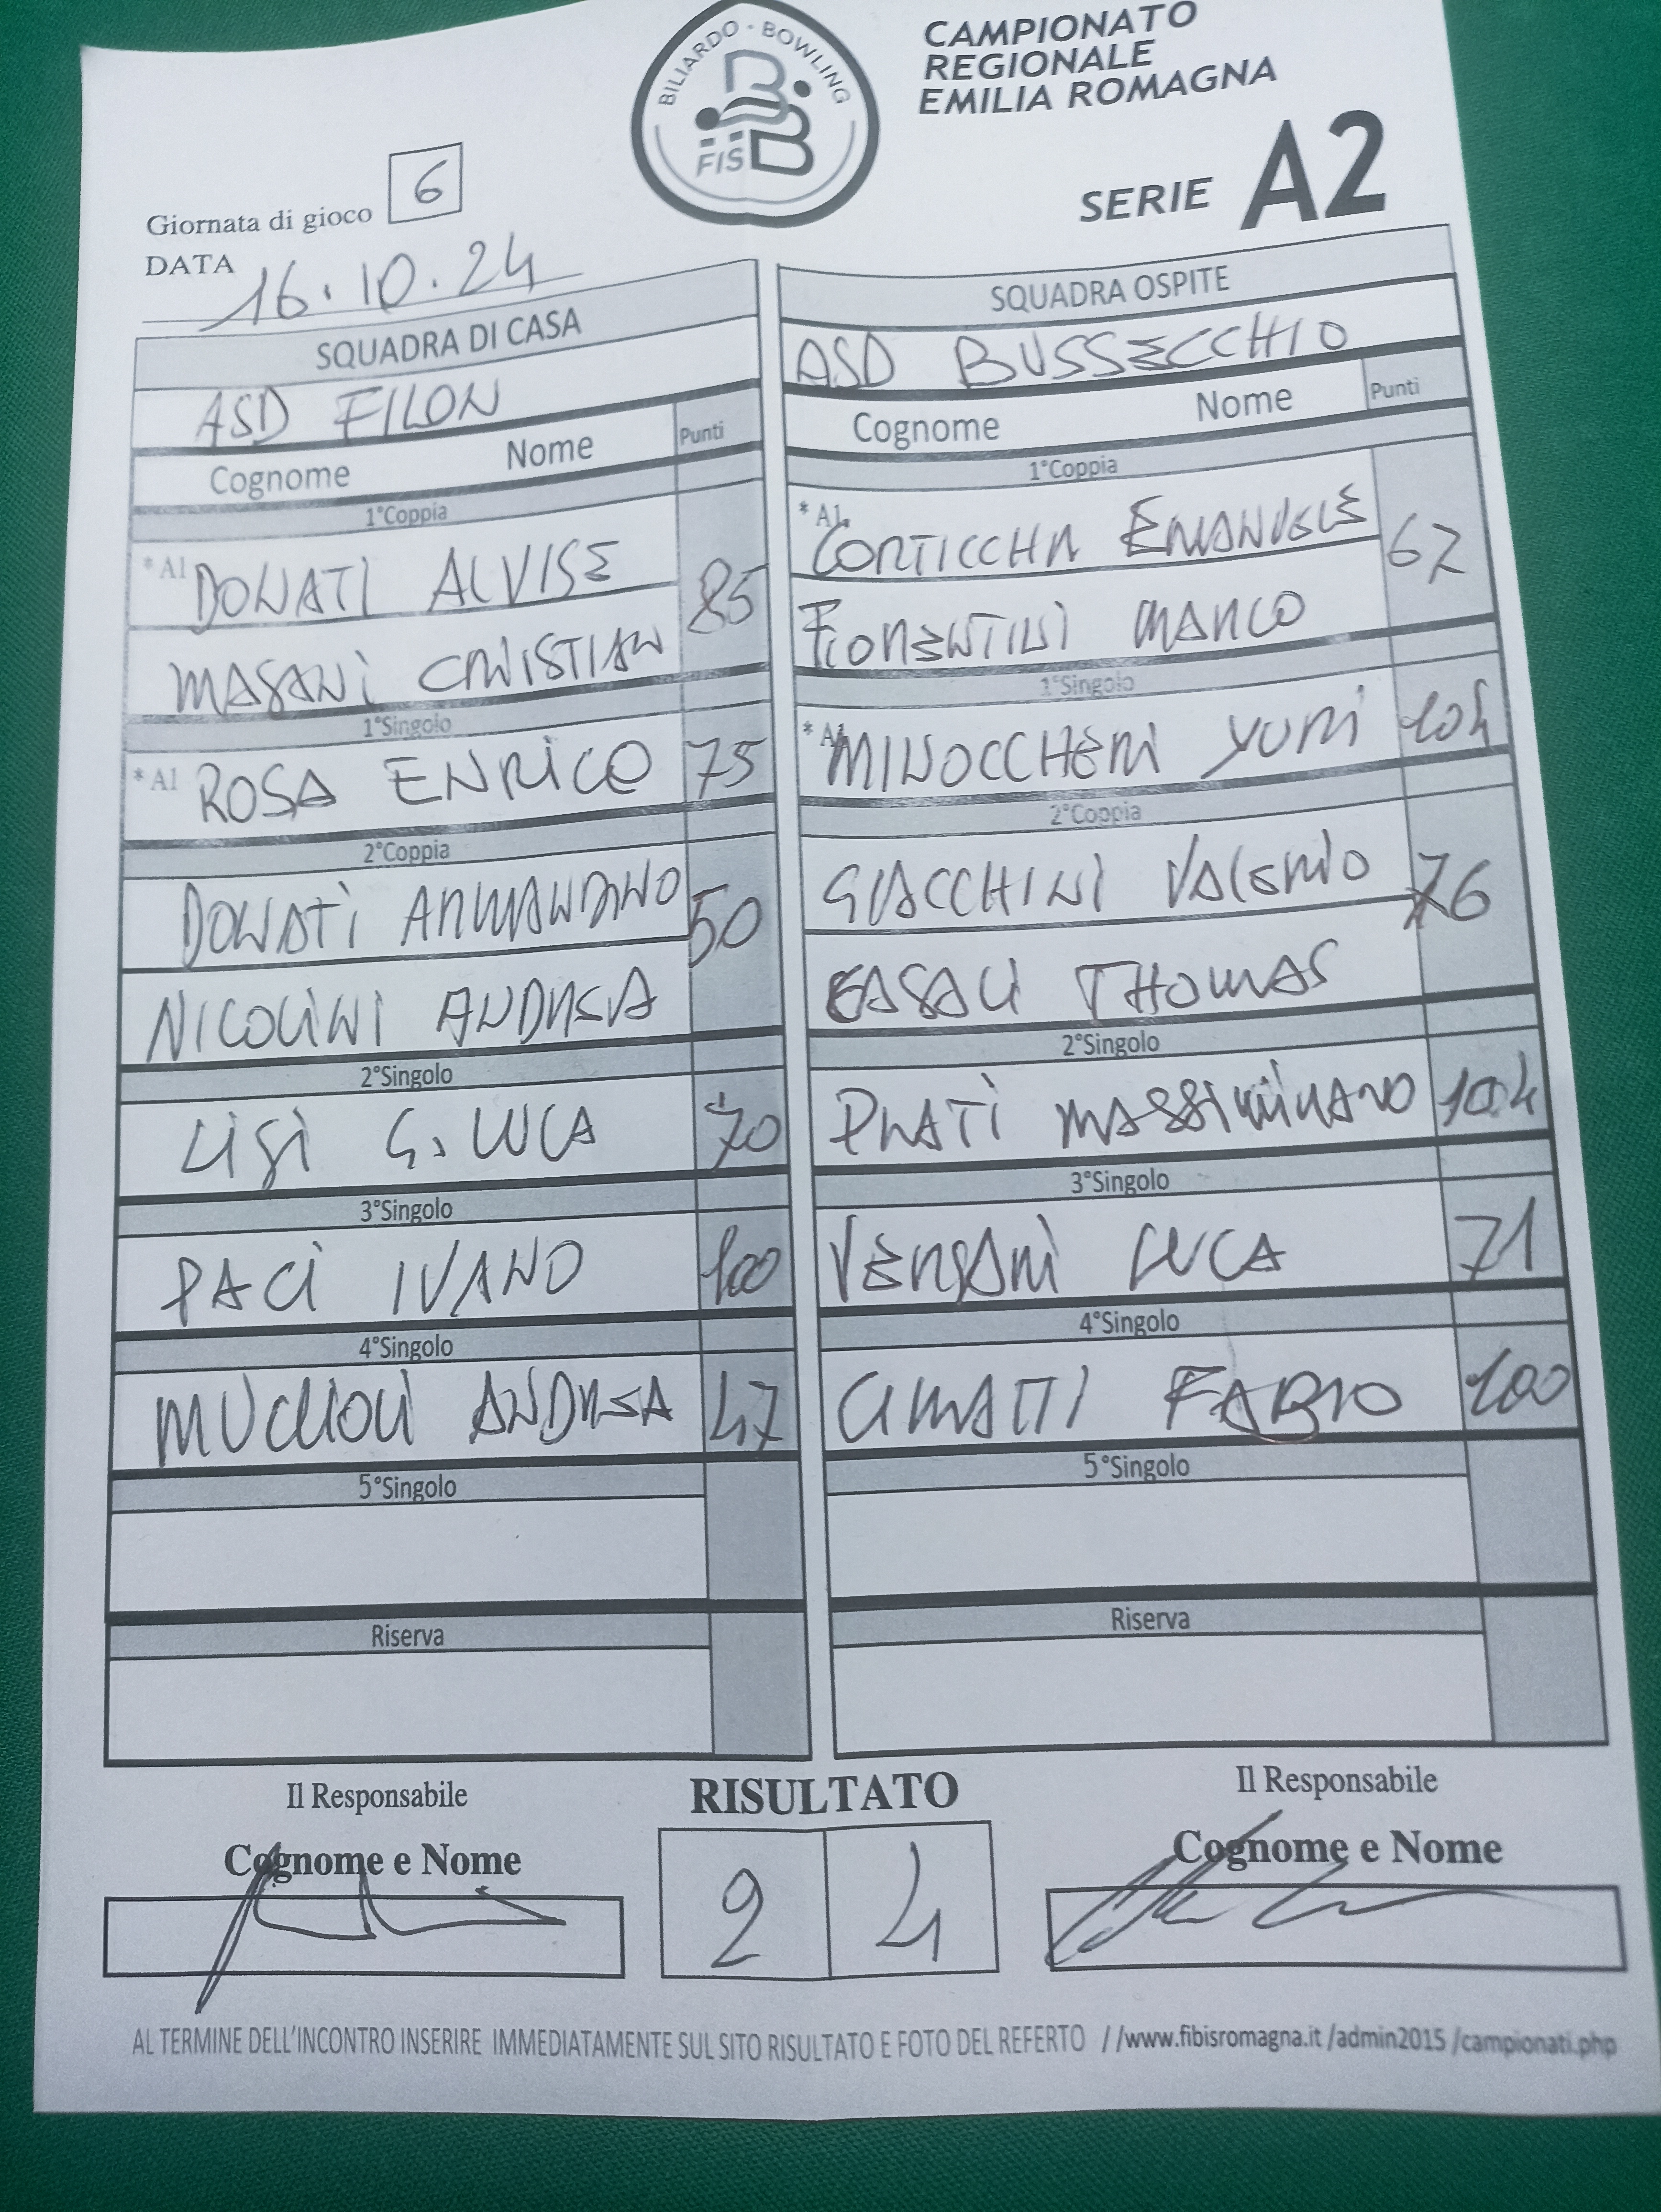 BILIARDO · BOWLING
FISBB
CAMPIONATO
REGIONALE
EMILIA ROMAGNA
SERIE A2
Giornata di gioco 6
DATA 16.10.24
SQUADRA DI CASA
ASD FILON
Cognome Nome Punti
1°Coppia
*A1 DONATI ALVISE 85
MASANI CRISTIAN
1°Singolo
*A1 ROSA ENRICO 75
2°Coppia
DONATI ARMANDINO 50
NICOLINI ANDREA
2°Singolo
LISI G. LUCA 70
3°Singolo
PACI IVANO 100
4°Singolo
MUCCIOLI ANDREA 47
5°Singolo
Riserva
SQUADRA OSPITE
ASD BUSSECCHIO
Cognome Nome Punti
1°Coppia
*A1 CORTICCHIA EMANUELE 62
FIORENTINI MARCO
1°Singolo
*A1 MINOCCHERI YURI 104
2°Coppia
GIACCHINI VALERIO 76
CASALI THOMAS
2°Singolo
PRATI MASSIMILIANO 104
3°Singolo
VERSARI LUCA 71
4°Singolo
CIMATTI FABIO 100
5°Singolo
Riserva
Il Responsabile
Cognome e Nome
RISULTATO
2 4
Il Responsabile
Cognome e Nome
AL TERMINE DELL'INCONTRO INSERIRE IMMEDIATAMENTE SUL SITO RISULTATO E FOTO DEL REFERTO //www.fibisromagna.it /admin2015 /campionati.php